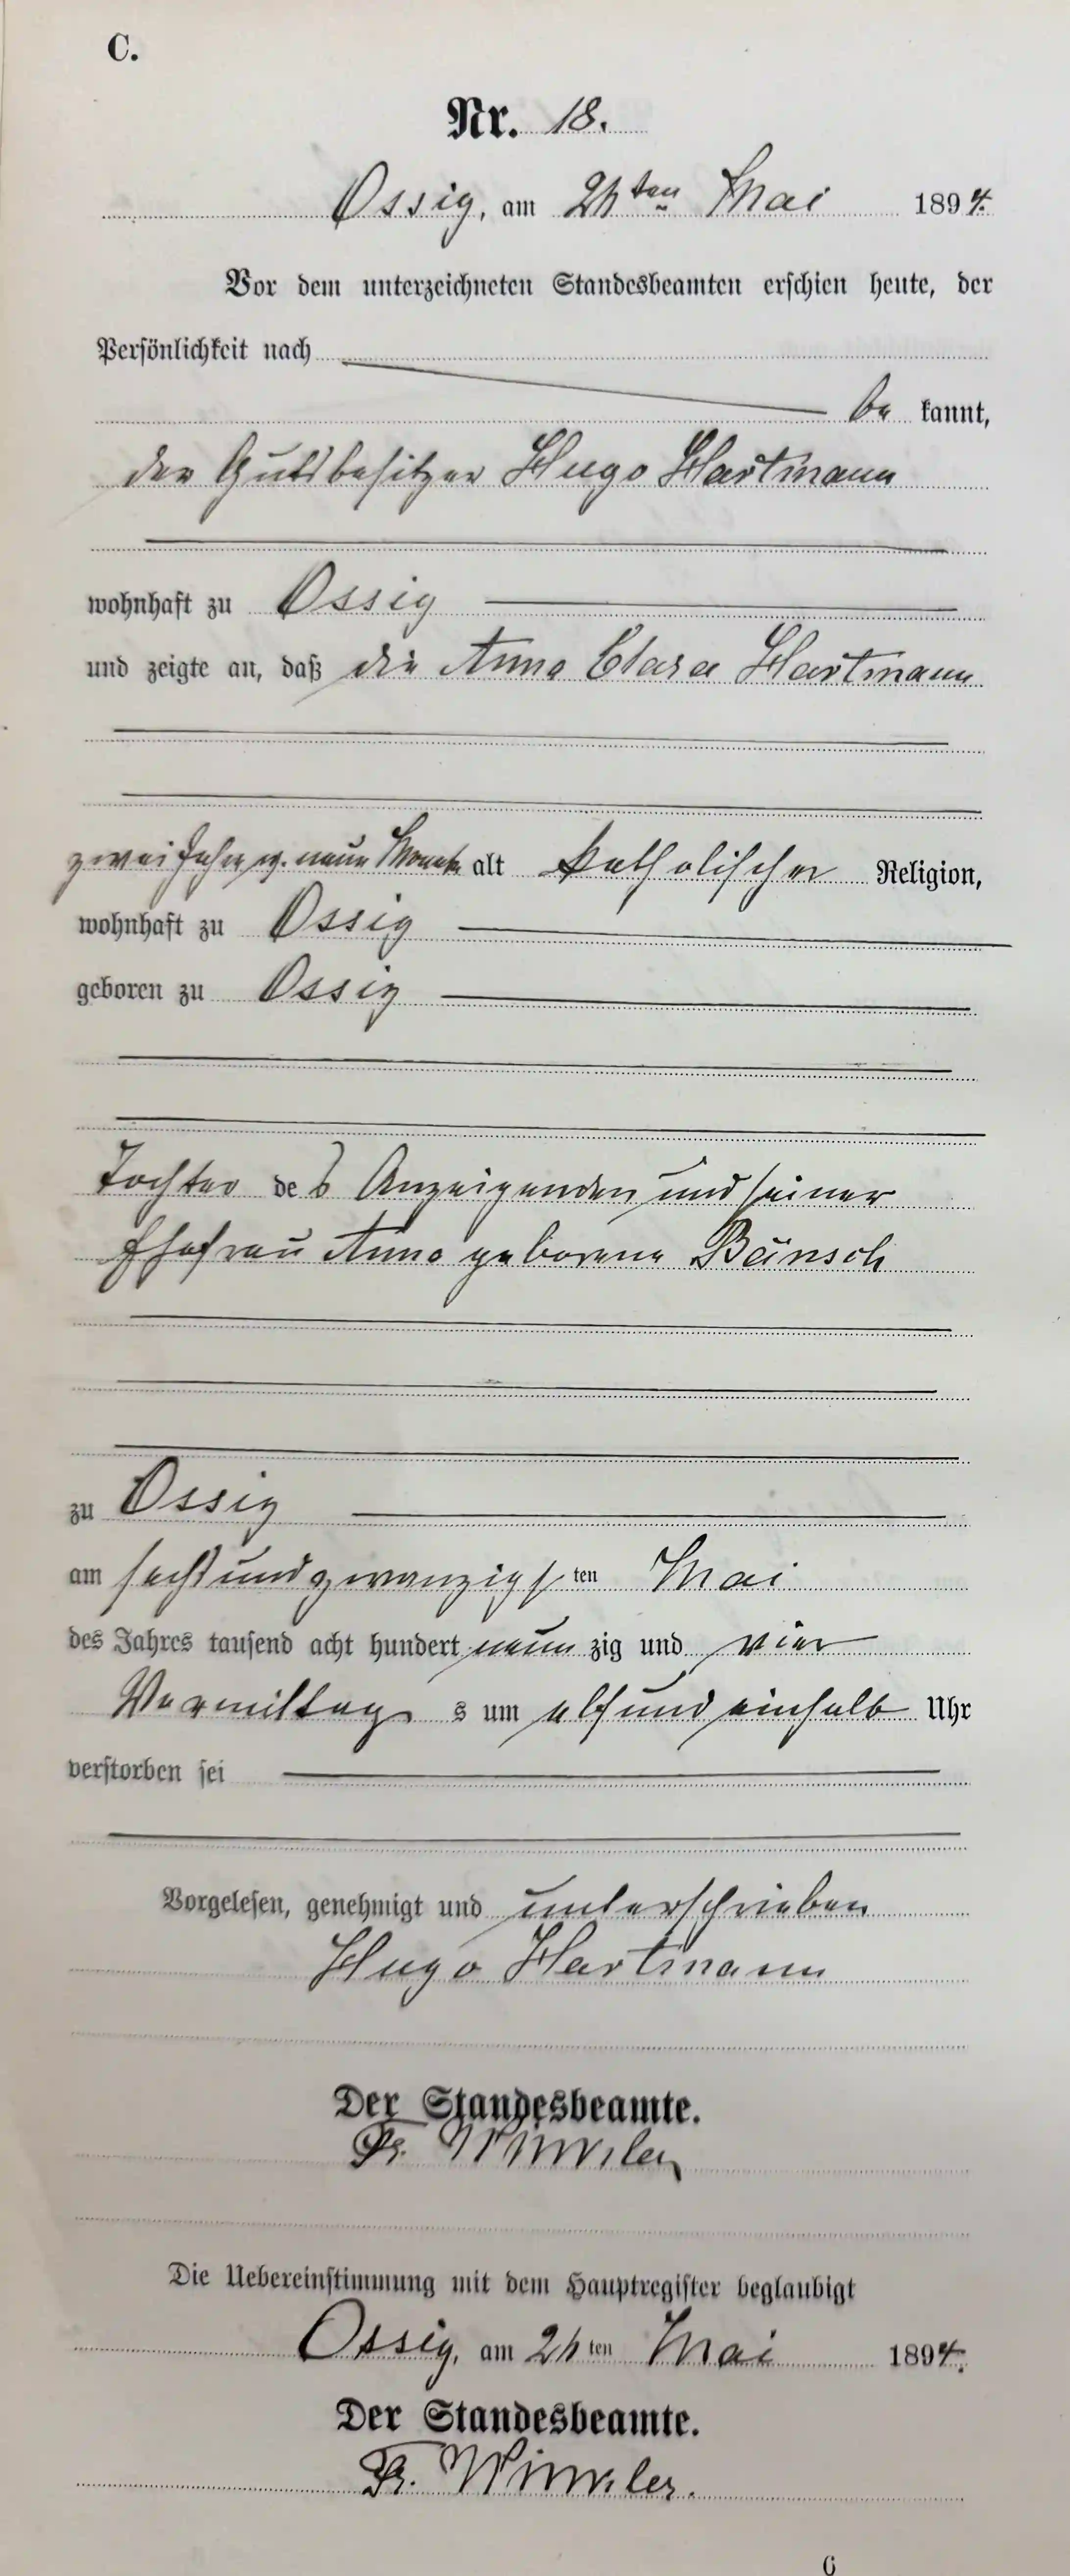 C.
Nr. 18.
Ossig, am 26ten Mai 1894.
Vor dem unterzeichneten Standesbeamten erschien heute, der
Persönlichkeit nach
be kannt,
der Gutsbesitzer Hugo Hartmann
wohnhaft zu Ossig
und zeigte an, daß die Anna Clara Hartmann
zwei Jahr u. neun Monate alt katholischer Religion,
wohnhaft zu Ossig
geboren zu Ossig
Tochter des Anzeigenden und seiner
Ehefrau Anna geborene Bänsch
zu Ossig
am sechsundzwanzigsten Mai
des Jahres tausend acht hundert neunzig und vier
Vormittags um elf und einhalb Uhr
verstorben sei
Vorgelesen, genehmigt und unterschrieben
Hugo Hartmann
Der Standesbeamte.
Fr. Winkler
Die Uebereinstimmung mit dem Hauptregister beglaubigt
Ossig, am 26ten Mai 1894.
Der Standesbeamte.
Fr. Winkler.
6